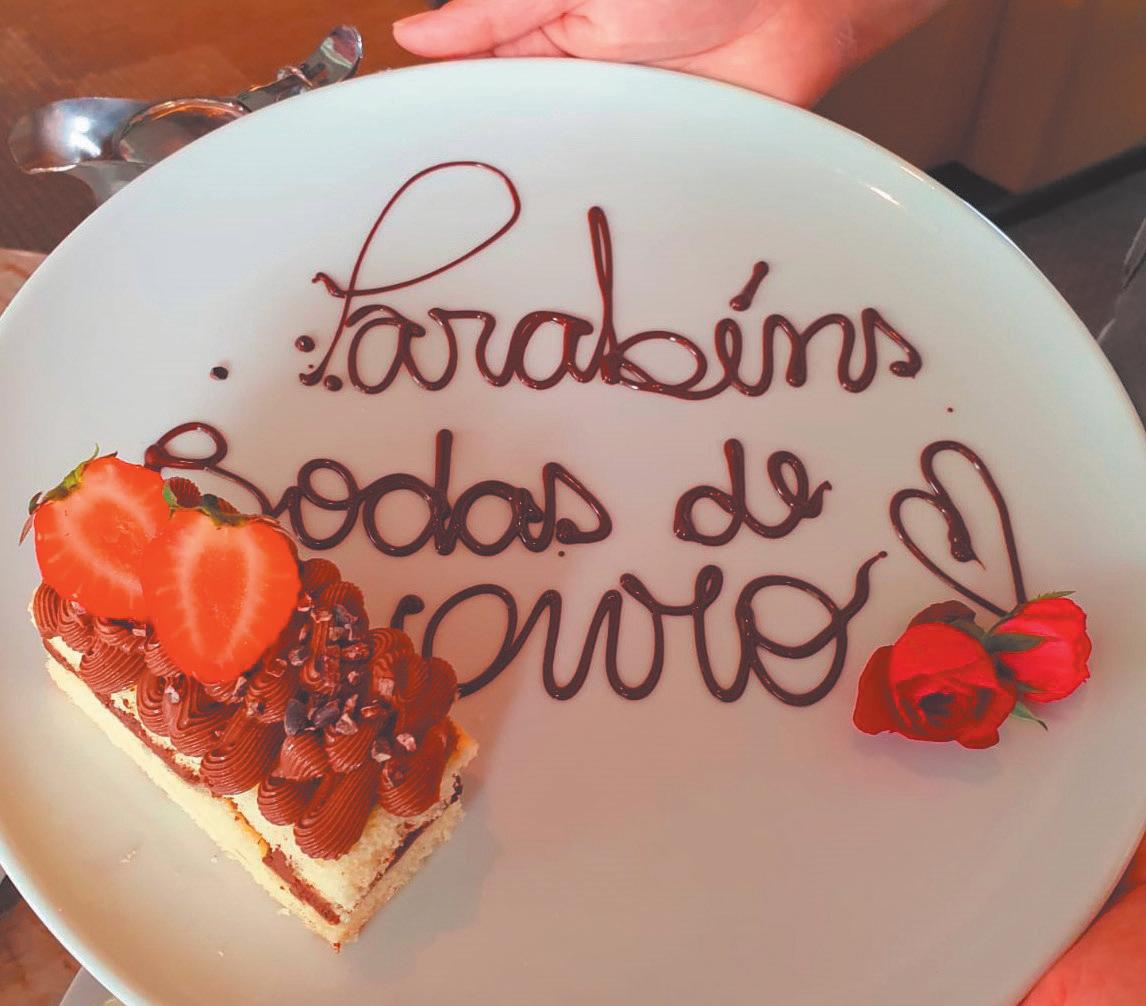 Parabéns
Bodas de
ouro